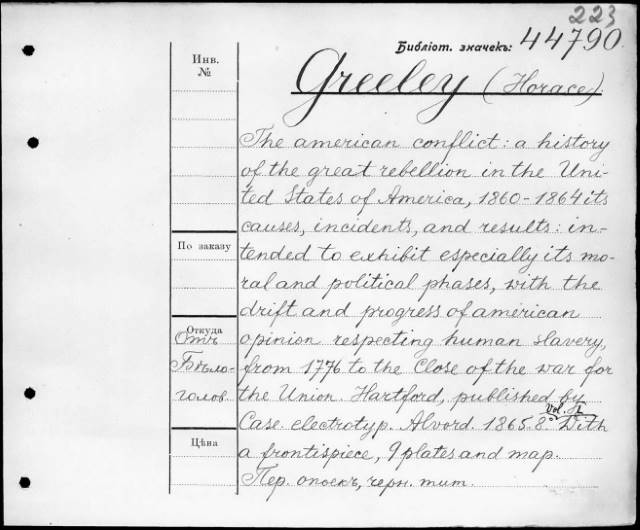 223
Библіот. значекъ: 44790.
Greeley (Horace).
Инв.
№
The american conflict: a history
of the great rebellion in the Uni-
ted States of America, 1860-1864 its
causes, incidents, and results: in-
tended to exhibit especially its mo-
ral and political phases, with the
drift and progress of american
opinion respecting human slavery,
from 1776 to the close of the war for
the Union. Hartford, published by
Vol. I
Case. electrotyp. Alvord. 1865. 8° With
a frontispiece, 9 plates and map.
Пер. опоекъ, черн. тит.
По заказу
Откуда
Отъ
Бѣло-
голов.
Цѣна